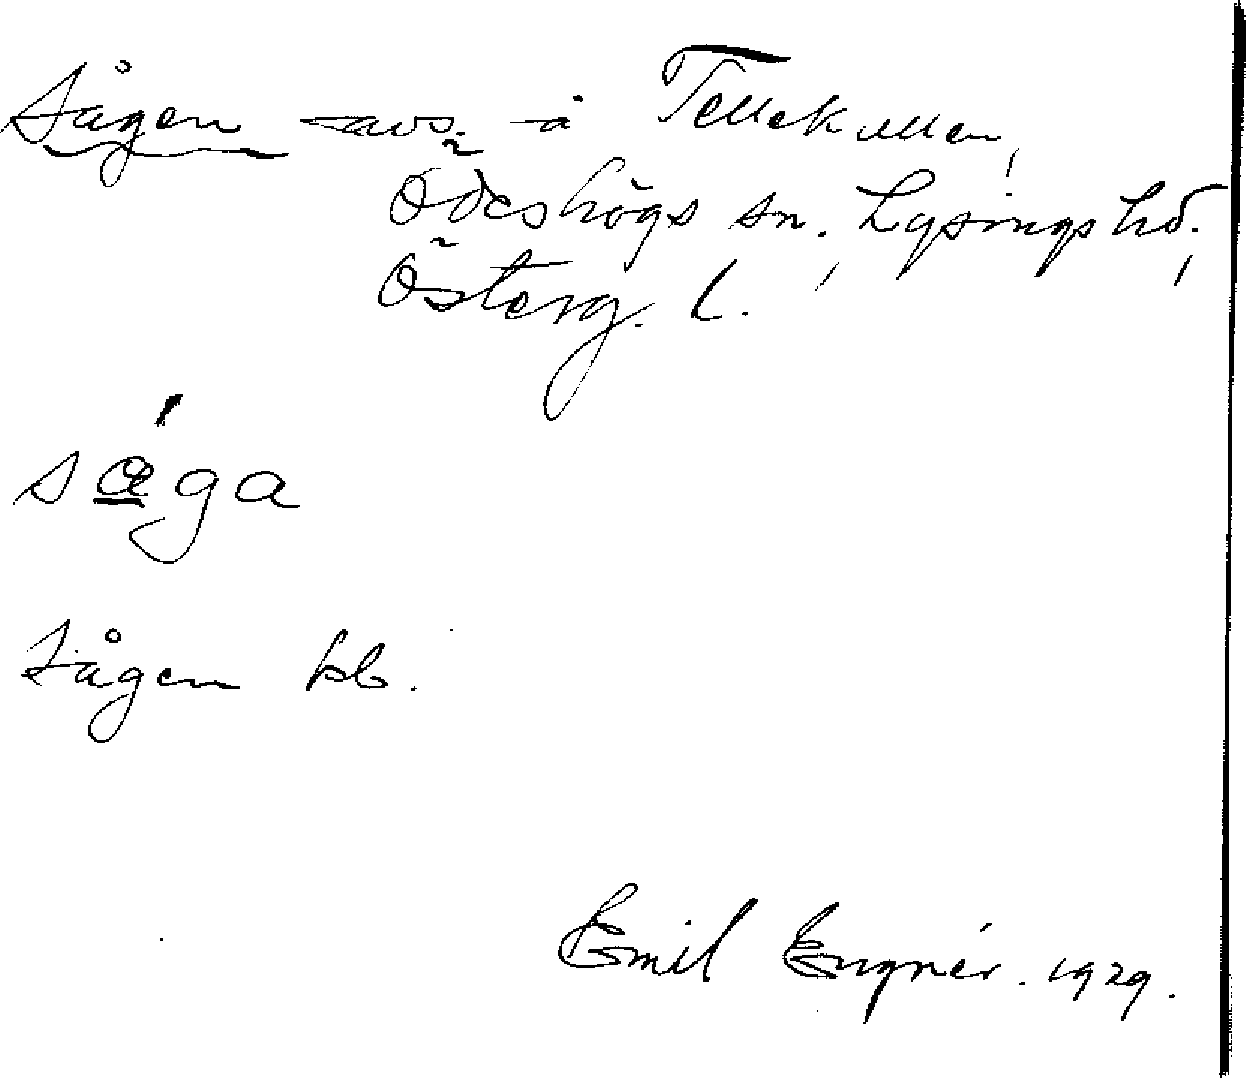 Sågen avs. å Tellekullen,
Ödeshögs sn., Lysings hd.,
Österg. l.
sǽ̲ga
Sågen kb.
Emil Engnér. 1929.